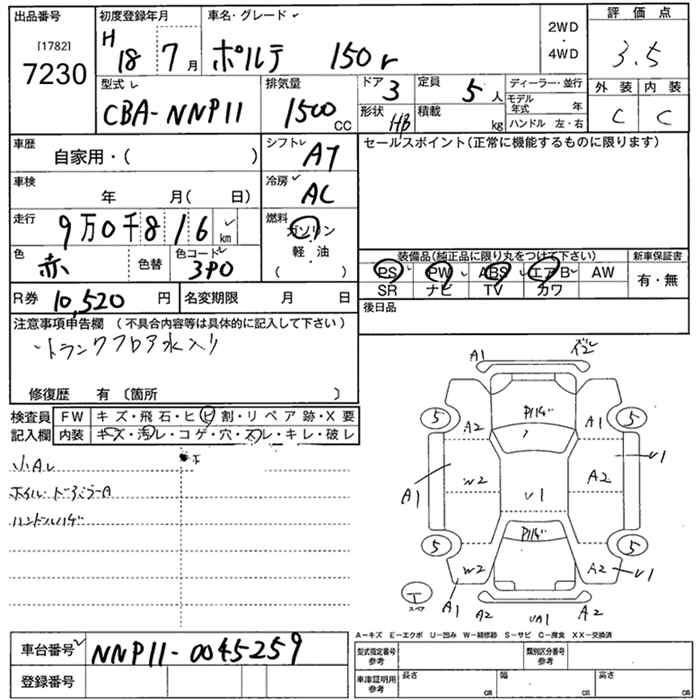 出品番号
[1782]
7230
初度登録年月
H 18 7 月
車名・グレード
ポルテ 150r
2WD
・
4WD
評価点
3.5
型式
CBA-NNP11
排気量
1500 CC
ドア 3
形状 HB
定員 5 人
積載 kg
ディーラー・並行
モデル年式 年
ハンドル 左・右
外装 内装
C C
車歴
自家用・( )
シフト
AT
セールスポイント(正常に機能するものに限ります)
車検
年 月( 日)
冷房
AC
走行
9万0千816 km
燃料
ガソリン
軽・油
( )
色
赤
色替
色コード
3P0
装備品(純品に限り丸をつけて下さい)
新車保証書
PS PW ABS エアB AW
SR ナビ TV カワ
有・無
R券 10,520 円
名変期限 月 日
後日品
注意事項申告欄 (不具合内容等は具体的に記入して下さい)
トランクフロア水入り
修復歴 有 〔箇所 〕
検査員
記入欄
FW キズ・飛石・ヒビ割・リペア跡・X要
内装 キズ・汚レ・コゲ・穴・スレ・キレ・破レ
小Aレ
ハンドルハゲ
A1
5 5
A2 A1
W2 A2 U1
A1
U1
5 5
W2 A2 U1
A1
T
スペア
A2 UA1 A2
A-キズ E-エクボ U-凹み W-補修跡 S-サビ C-腐食 XX-交換済
車台番号
NNP11-0045259
登録番号
型式指定番号
参考
類別区分番号
参考
車庫証明用
参考
長さ cm
幅 cm
高さ cm